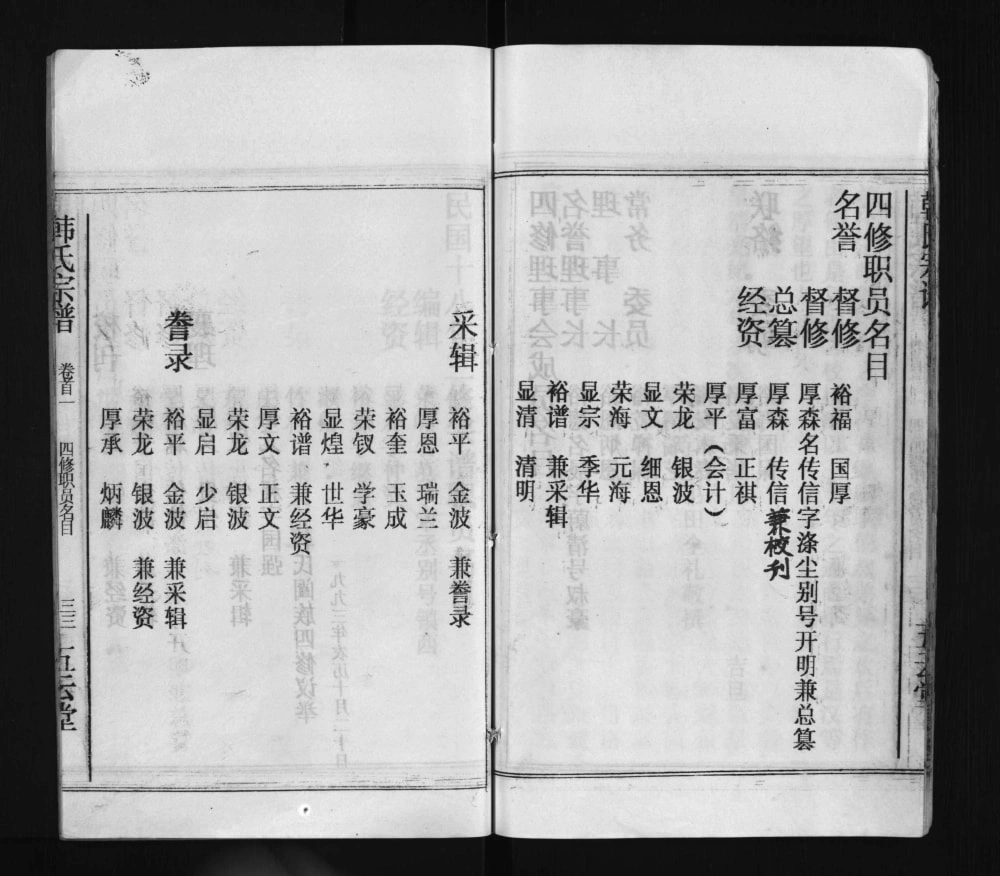 四修职员名目
名誉 督修 裕福 国厚
督修 厚森名传信字涤尘别号开明兼总篡
总篡 厚森 传信兼校刊
经资 厚富 正祺
厚平（会计）
荣龙 银波
显文 细恩
荣海 元海
显宗 季华
裕谱 兼采辑
显清 清明
采辑 裕平 金波 兼誊录
厚恩 瑞兰
裕奎 玉成
荣钗 学豪
显煌 世华
裕谱 兼经资
厚文 正文
荣龙 银波
显启 少启
誊录 裕平 金波 兼采辑
荣龙 银波 兼经资
厚承 炳麟
韩氏宗谱 卷首一 四修职员名目 三三 五云堂